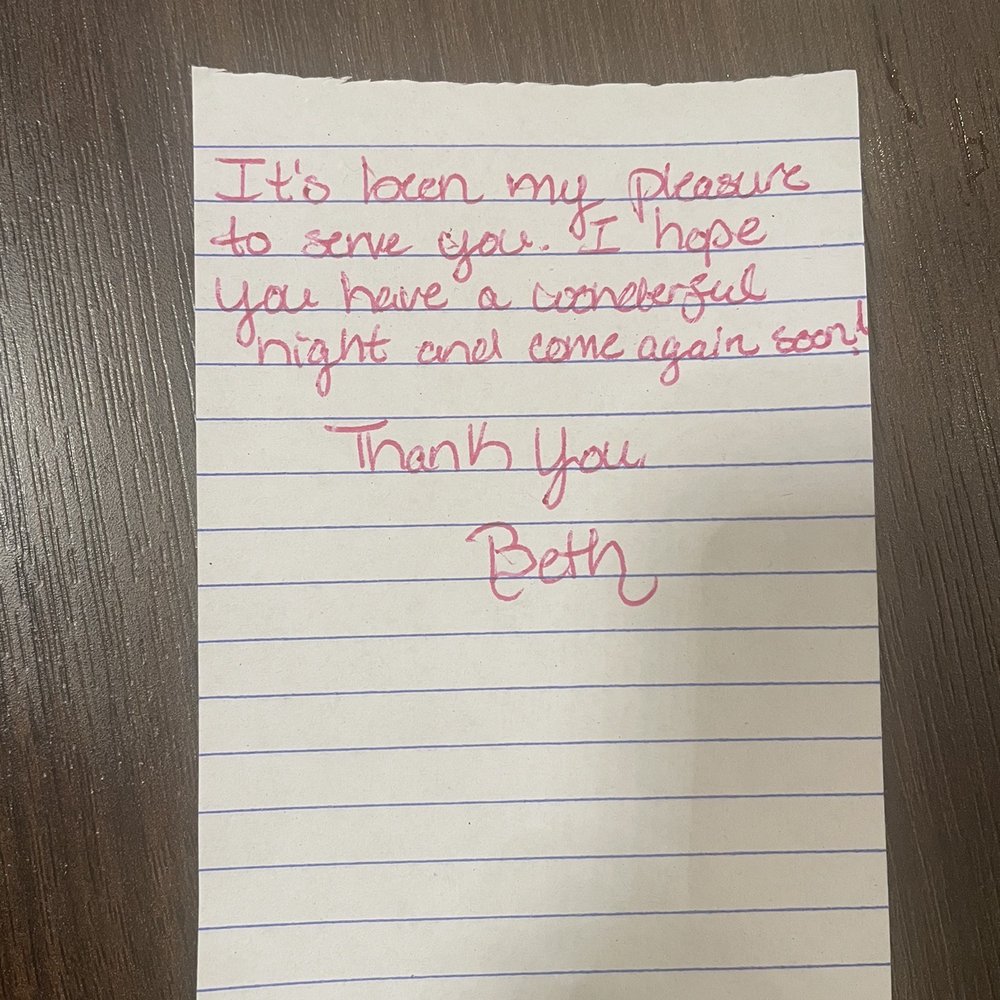 It's been my pleasure
to serve you. I hope
you have a wonderful
night and come again soon!
Thank You
Beth